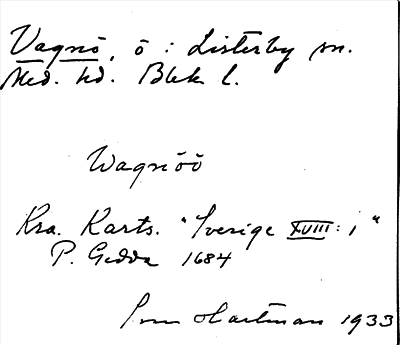 Vagnö, ö : Listerby sn.
Med. hd. Blek l.
Wagnöö
Kra. Karts. "Sverige XVIII: 1"
P. Gedda 1684
Hartman 1933